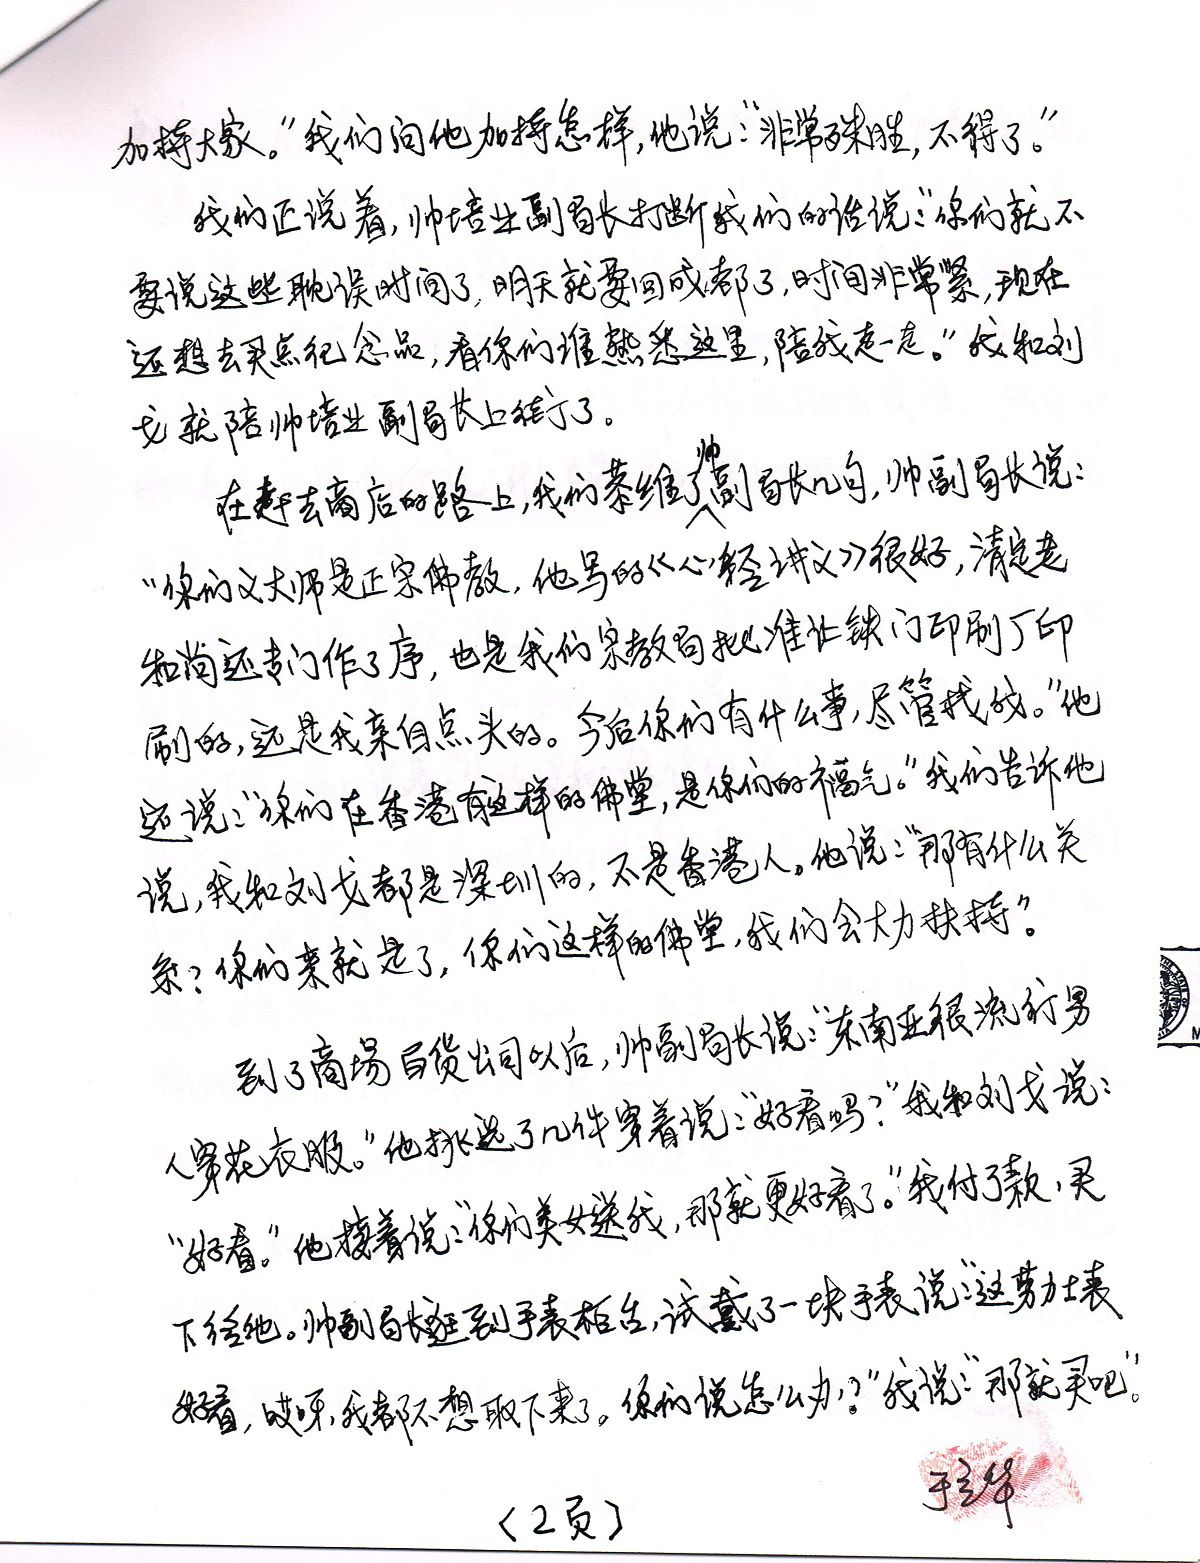 加持大家。”我们问他加持怎样，他说：“非常殊胜，不得了。”
我们正说着，帅培业副局长打断我们的话说：“你们就不
要说这些耽误时间了，明天就要回成都了，时间非常紧，现在
还想去买点纪念品，看你们谁熟悉这里，陪我走一走。”我和刘
戈就陪帅培业副局长上街了。
在赶去商店的路上，我们恭维了帅副局长几句，帅副局长说：
“你们义大师是正宗佛教，他写的《心经讲义》很好，清定老
和尚还专门作了序，也是我们宗教局批准让铁门印刷厂印
刷的，还是我亲自点头的。今后你们有什么事，尽管找我。”他
还说：“你们在香港有这样的佛堂，是你们的福气。”我们告诉他
说，我和刘戈都是深圳的，不是香港人。他说：“那有什么关
系？你们来就是了，你们这样的佛堂，我们会大力扶持”。
到了商场百货公司以后，帅副局长说：“东南亚很流行男
人穿花衣服。”他挑选了几件穿着说：“好看吗？”我和刘戈说：
“好看。”他接着说：“你们美女送我，那就更好看了。”我付了款，买
下给他。帅副局长逛到手表柜台，试戴了一块手表说：“这劳力士表
好看，哎呀，我都不想取下来了。你们说怎么办？”我说：“那就买吧”。
于立华
（2页）